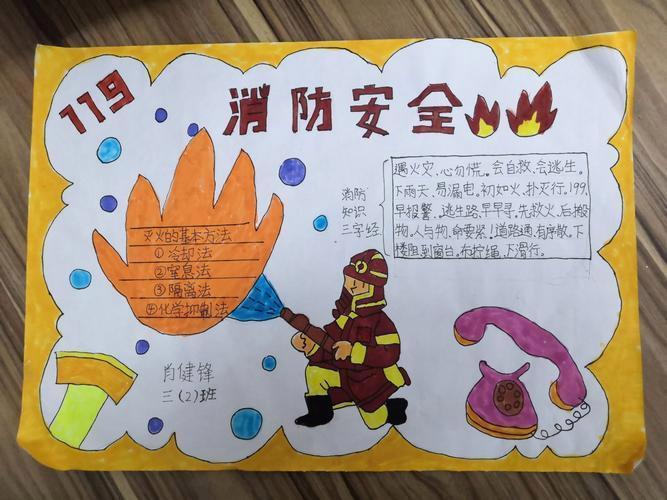 119
消防安全
灭火的基本方法
①冷却法
②窒息法
③隔离法
④化学抑制法
消防
知识
三字经
遇火灾、心勿慌。会自救、会逃生。
下雨天、易漏电。初如火、扑灭行。199、
早报警、逃生路、早早寻。先救火、后搬
物。人与物、命要紧!道路通、有序散。下
楼阻到窗台。布拧绳、下滑行。
肖健锋
三(2)班